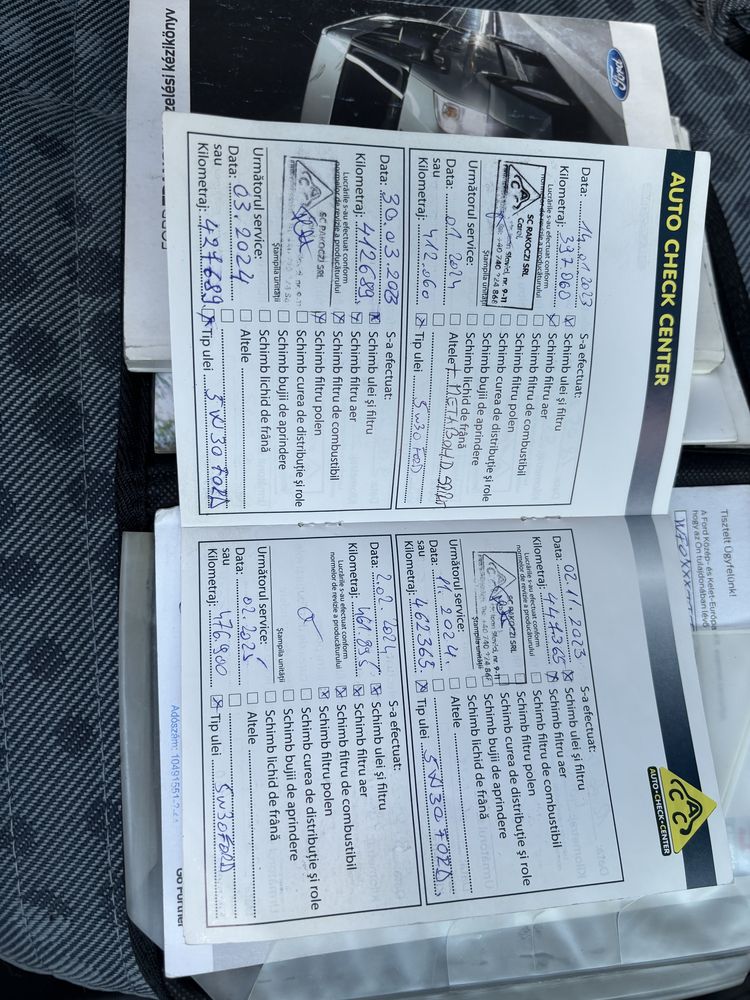 zelési kézikönyv
Ford
AUTO CHECK CENTER
Data: 14.01.2023
Kilometraj: 397060
SC RAKOCZI SRL
Carei,
nr. 9-11
+40 740 924 868
Ștampila unității
Următorul service:
Data: 01.2024
sau
Kilometraj: 412.060
S-a efectuat:
Schimb ulei și filtru
Schimb filtru aer
Schimb filtru de combustibil
Schimb filtru polen
Schimb curea de distribuție și role
Schimb bujii de aprindere
Schimb lichid de frână
Altele
Tip ulei 5W30 FORD
Data: 30.03.2023
Kilometraj: 412689
Lucrările s-au efectuat conform
normelor de revizie a producătorului
SC RAKOCZI SRL
Ștampila unității
Următorul service:
Data: 03.2024
sau
Kilometraj: 427689
S-a efectuat:
Schimb ulei și filtru
Schimb filtru aer
Schimb filtru de combustibil
Schimb filtru polen
Schimb curea de distribuție și role
Schimb bujii de aprindere
Schimb lichid de frână
Altele
Tip ulei 5W30 FORD
AUTO•CHECK•CENTER
Data: 02.11.2023
Kilometraj: 447365
Lucrările s-au efectuat conform
normelor de revizie a producătorului
SC RAKOCZI SRL
nr. 9-11
+40 740 924 868
Ștampila unității
Următorul service:
Data: 11.2024.
sau
Kilometraj: 462365
S-a efectuat:
Schimb ulei și filtru
Schimb filtru aer
Schimb filtru de combustibil
Schimb filtru polen
Schimb curea de distribuție și role
Schimb bujii de aprindere
Schimb lichid de frână
Altele
Tip ulei 5W30 FORD
Data: 2.02.2024
Kilometraj: 461.995
Lucrările s-au efectuat conform
normelor de revizie a producătorului
Ștampila unității
Următorul service:
Data: 02.2025
sau
Kilometraj: 476.900
S-a efectuat:
Schimb ulei și filtru
Schimb filtru aer
Schimb filtru de combustibil
Schimb filtru polen
Schimb curea de distribuție și role
Schimb bujii de aprindere
Schimb lichid de frână
Altele
Tip ulei 5W30 FORD
Tisztelt Ügyfelünk!
A Ford Közép- és Kelet-Európa
hogy az Ön tulajdonában lévő
Adószám: 10491551
Go Further